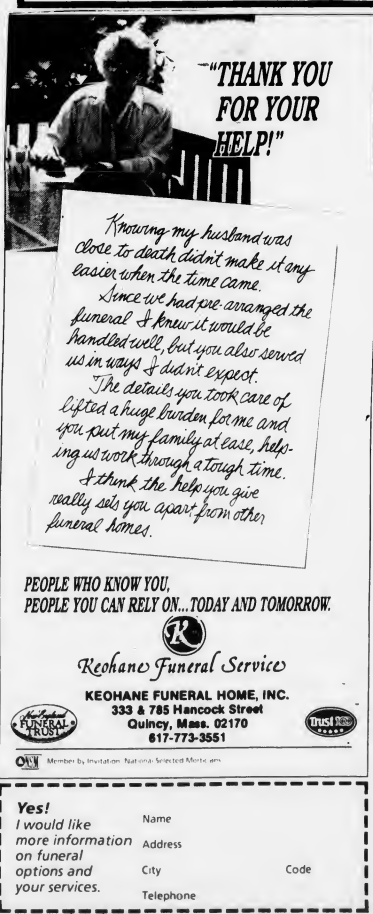 "THANK YOU
FOR YOUR
HELP!"
Knowing my husband was
close to death didn't make it any
easier when the time came.
Since we had pre-arranged the
funeral I knew it would be
handled well, but you also served
us in ways I didn't expect.
The details you took care of
lifted a huge burden for me and
you put my family at ease, help-
ing us work through a tough time.
I think the help you give
really sets you apart from other
funeral homes.
PEOPLE WHO KNOW YOU,
PEOPLE YOU CAN RELY ON...TODAY AND TOMORROW.
K
Keohane Funeral Service
KEOHANE FUNERAL HOME, INC.
333 & 785 Hancock Street
Quincy, Mass. 02170
617-773-3551
New England
FUNERAL
TRUST
Trust 100
Member by Invitation National Selected Morticians
Yes!
I would like
more information
on funeral
options and
your services.
Name
Address
City Code
Telephone